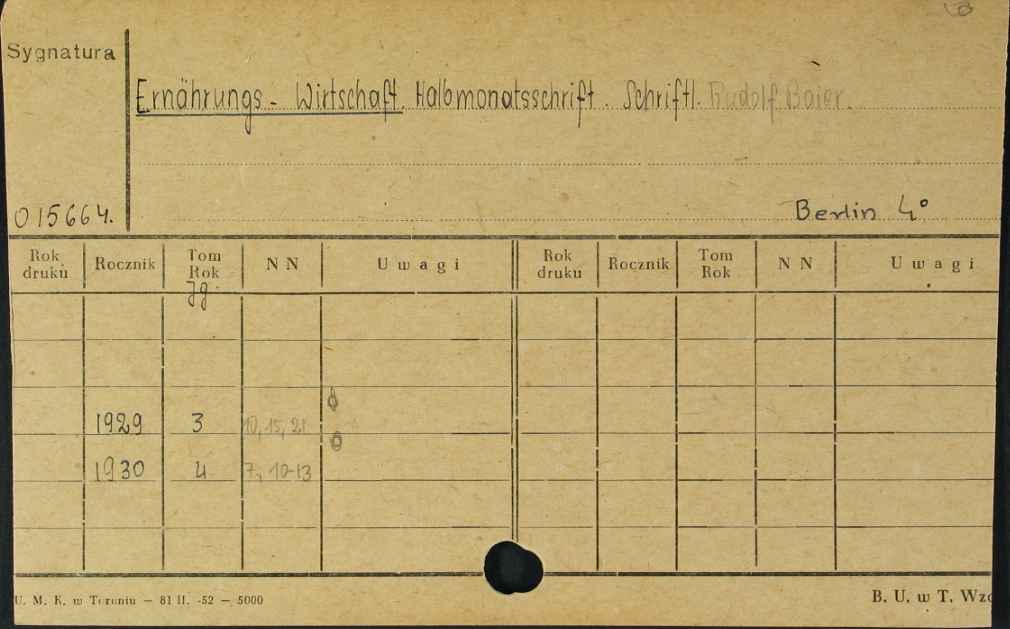 Sygnatura
Ernährungs-Wirtschaft. Halbmonatsschrift. Schriftl. Rudolf Baier.
015664.
Berlin 4°
Rok druku Rocznik Tom Rok N N Uwagi Rok druku Rocznik Tom Rok N N Uwagi
Jg.
1929 3 10, 15, 21
1930 4 7, 10-13
U. M. K. w Toruniu — 81 II. -52 — 5000
B. U. w T. Wzo